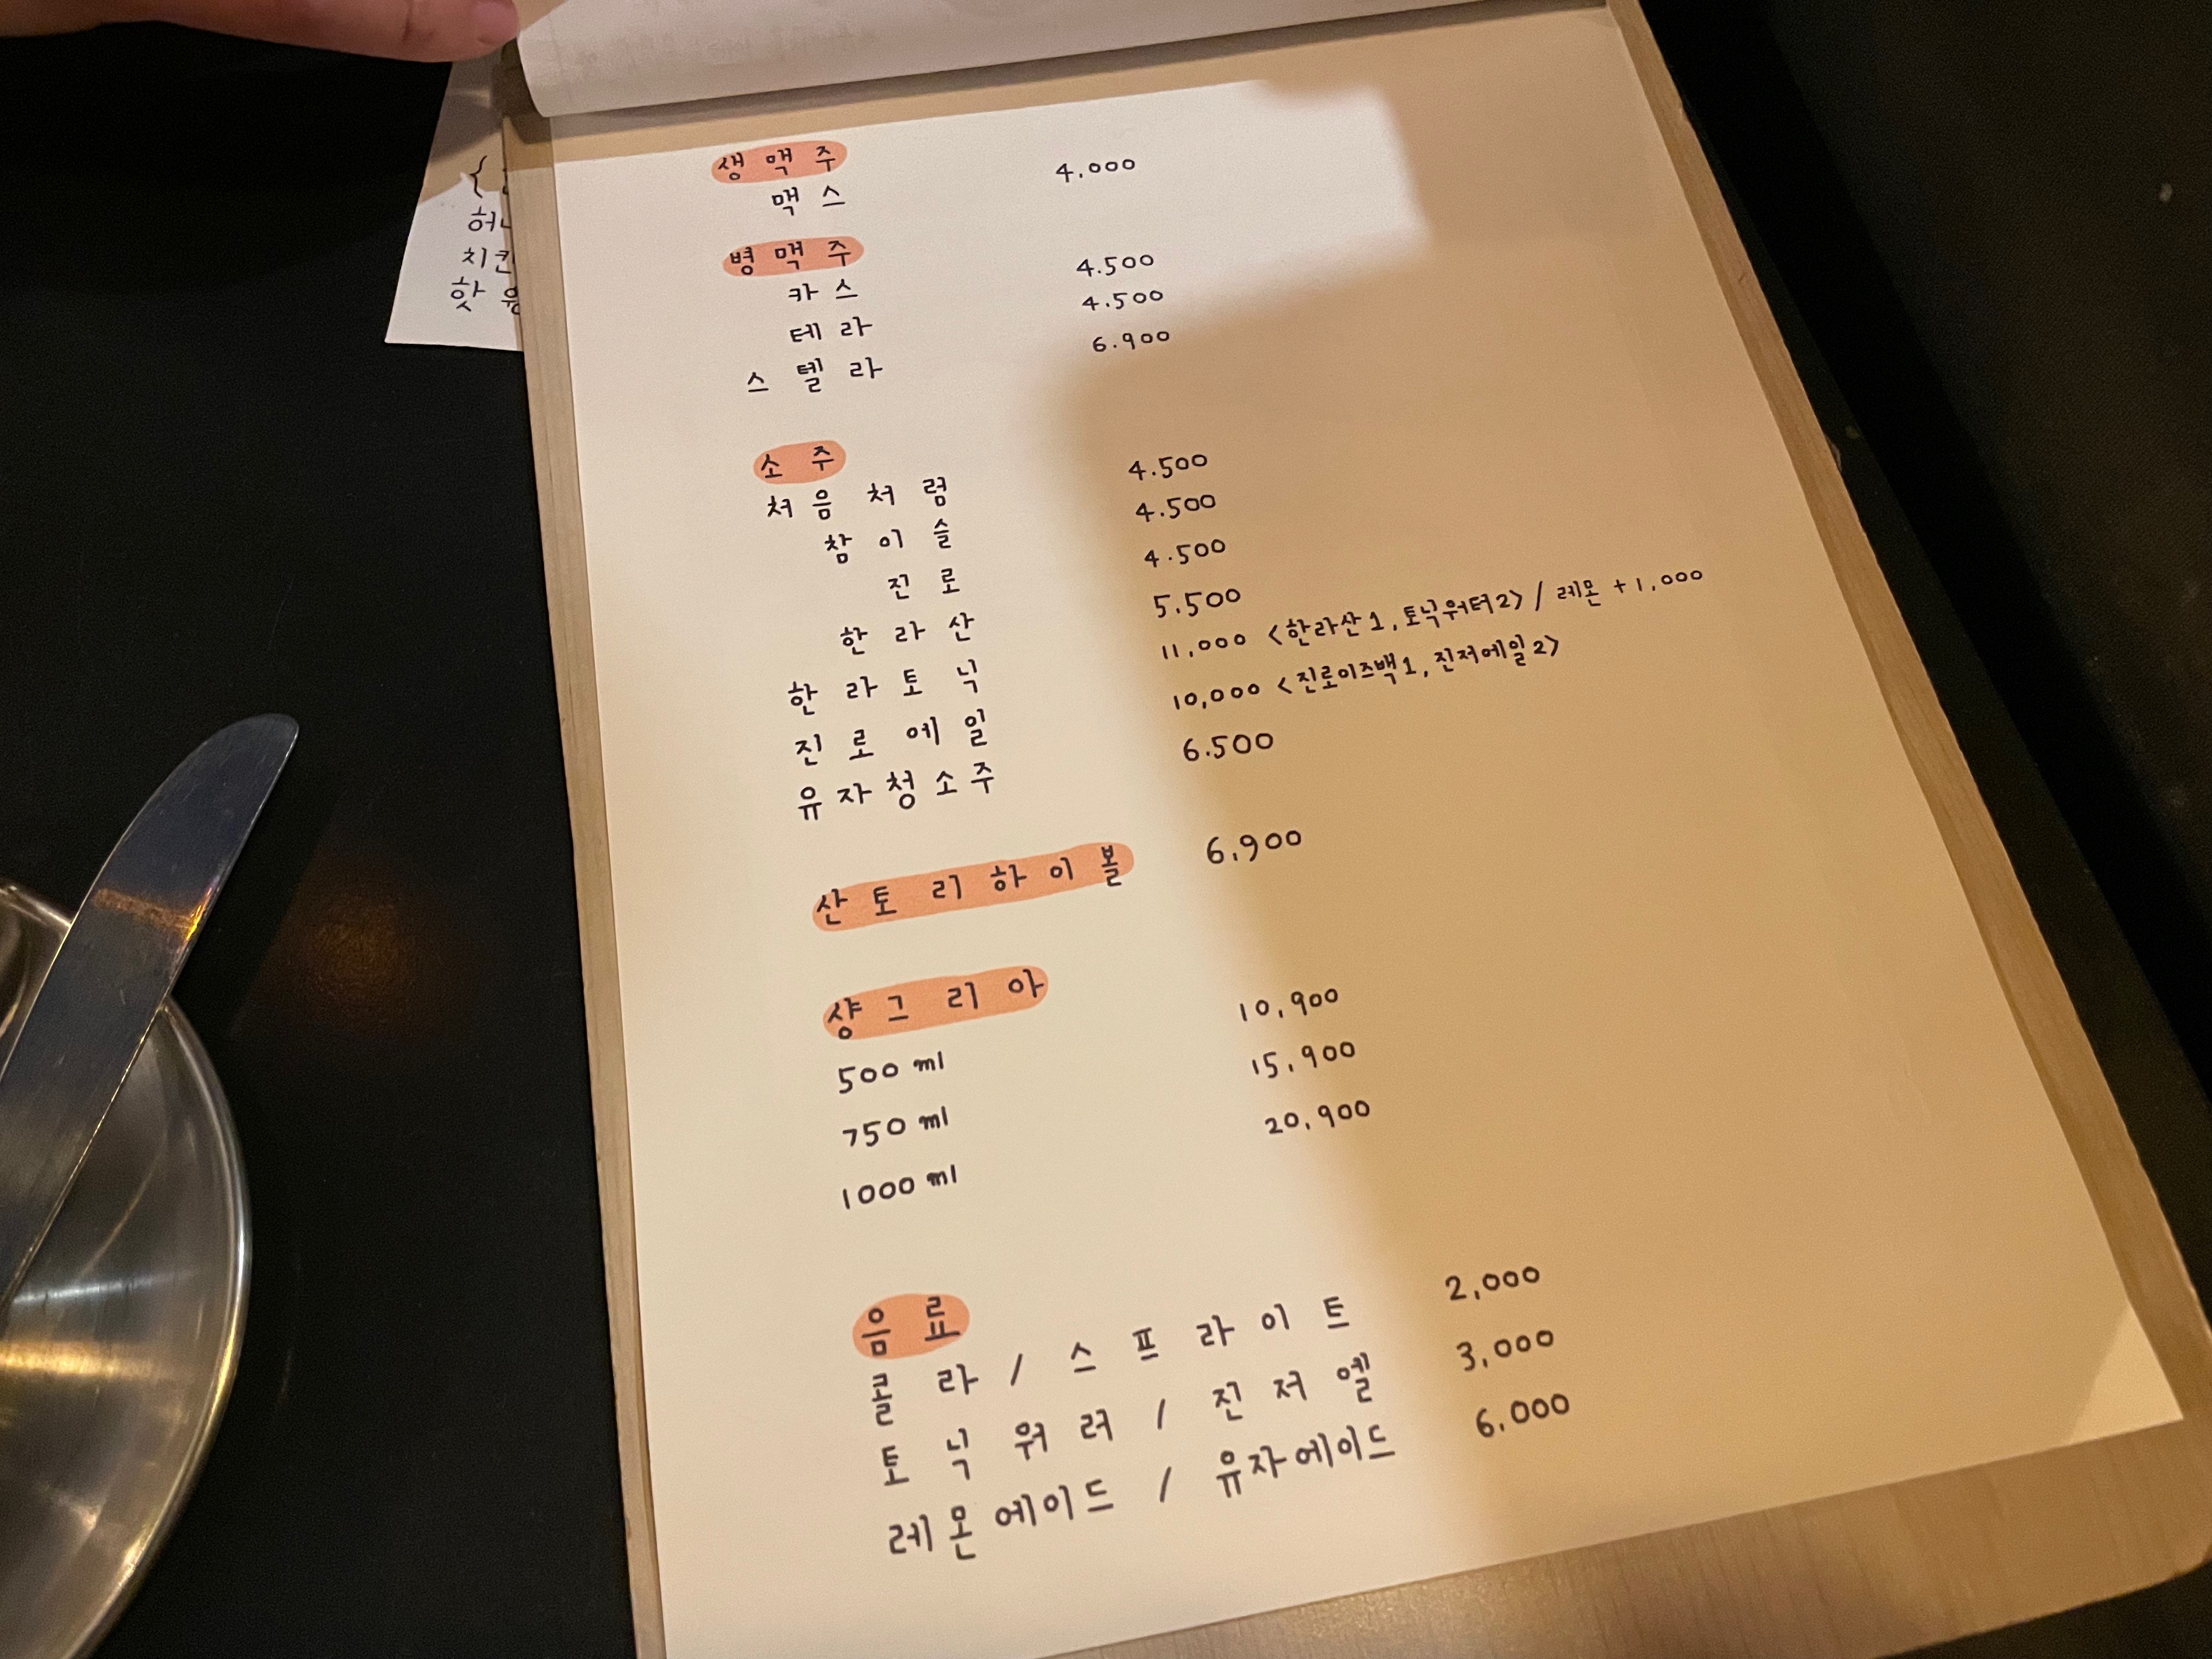 생맥주
맥스 4,000
병맥주
카스 4.500
테라 4.500
스텔라 6.900
소주
처음처럼 4.500
참이슬 4.500
진로 4.500
한라산 5.500
한라토닉 11,000 <한라산1, 토닉워터2> / 레몬 +1,000
진로에일 10,000 <진로이즈백1, 진저에일2>
유자청소주 6.500
산토리하이볼 6,900
샹그리아
500ml 10,900
750ml 15,900
1000ml 20,900
음료
콜라 / 스프라이트 2,000
토닉워러 / 진저엘 3,000
레몬에이드 / 유자에이드 6,000
{
핫